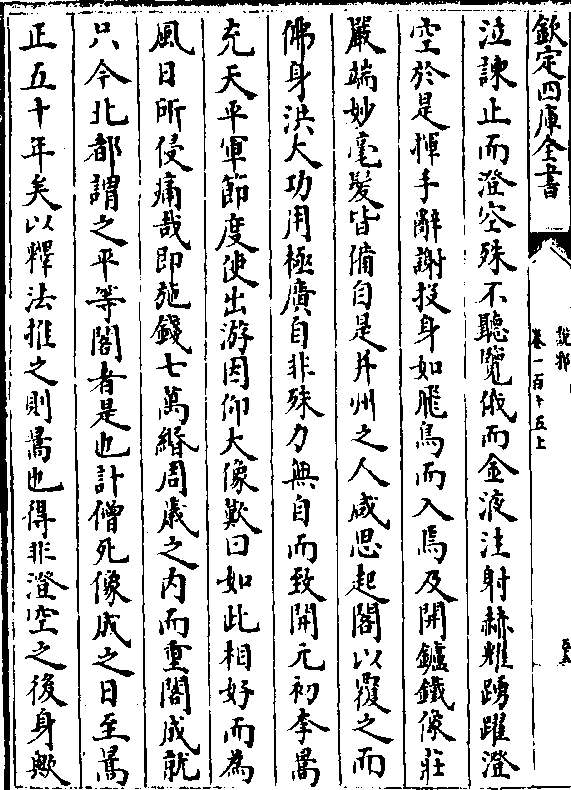 欽定四庫全書
說郛
卷一百十五上
泣諫止而澄空殊不聽覽俄而金液注射赫耀踴躍澄
空於是揮手辭謝投身如飛鳥而入焉及開鑪鐵像莊
嚴端妙毫髮皆備自是并州之人咸思起閣以覆之而
佛身洪大功用極廣自非殊力無自而致開元初李暠
充天平軍節度使出游因仰大像歎曰如此相好而為
風日所侵痛哉即施錢七萬緡周歲之內而重閣成就
只今北都謂之平等閣者是也計僧死像成之日至暠
正五十年矣以釋法推之則暠也得非澄空之後身歟